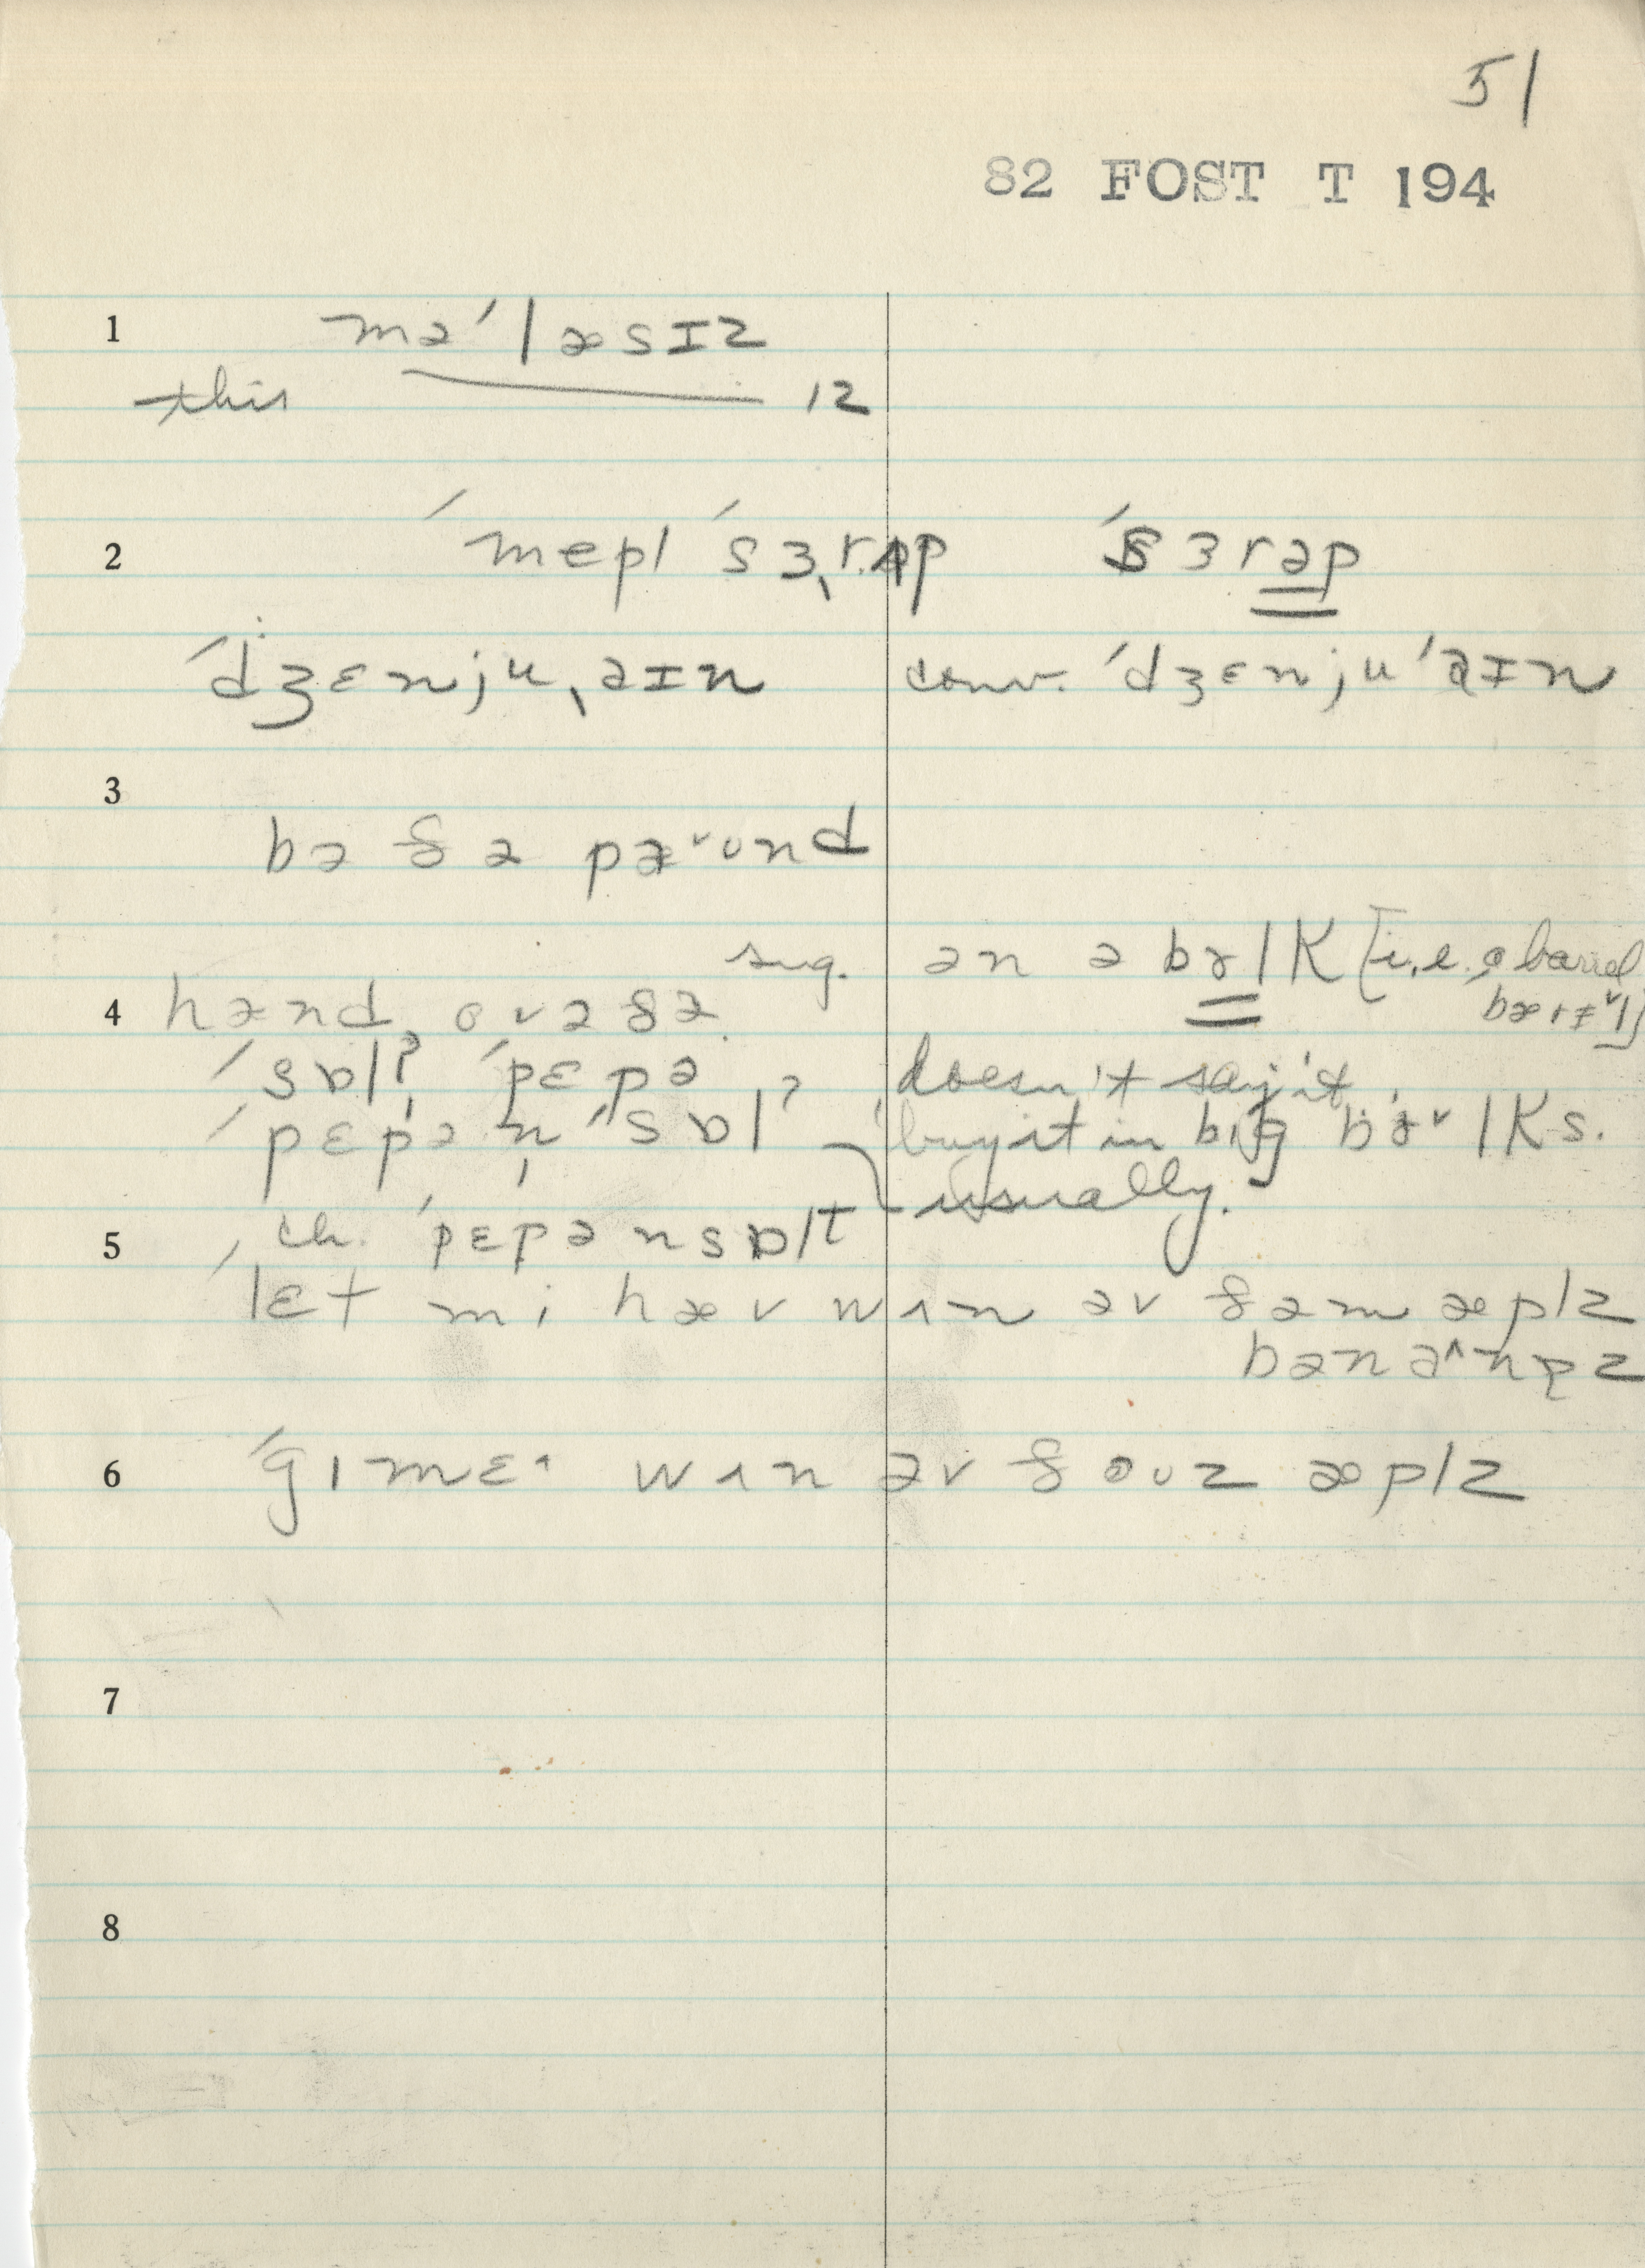 51
82 FOST T 194
1 mə ˈlæsɪz
this 12
2 ˈmepl ˈsɜˌrʌp ˈsɜrəp
ˈdʒɛnjuˌaɪn conv. ˈdʒɛnjuˈaɪn
3
bə ðə paˇʊnd
sug. ən ə bɤlK [i.e., a barrel
4 hænd ovə ðə bærɪˇl]
ˈsɒlʔ ˈpɛpə doesn't say it,
ˈpɛpə n̩ ˈsɒlʔ buy it in bɪg bɤˇlKs.
usually.
5 ch. ˈpɛpənsɒlt
ˈlɛt mi hæv wʌn əv ðəm æplz
6 ˈgɪmɛ^ wʌn əv ðoʊz æplz
7
8